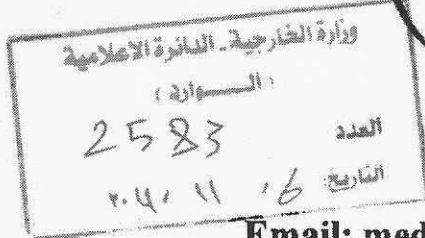 وزارة الخارجية - الدائرة الاعلامية
( الـــوارد )
العدد 2583
التاريخ:
Email: med